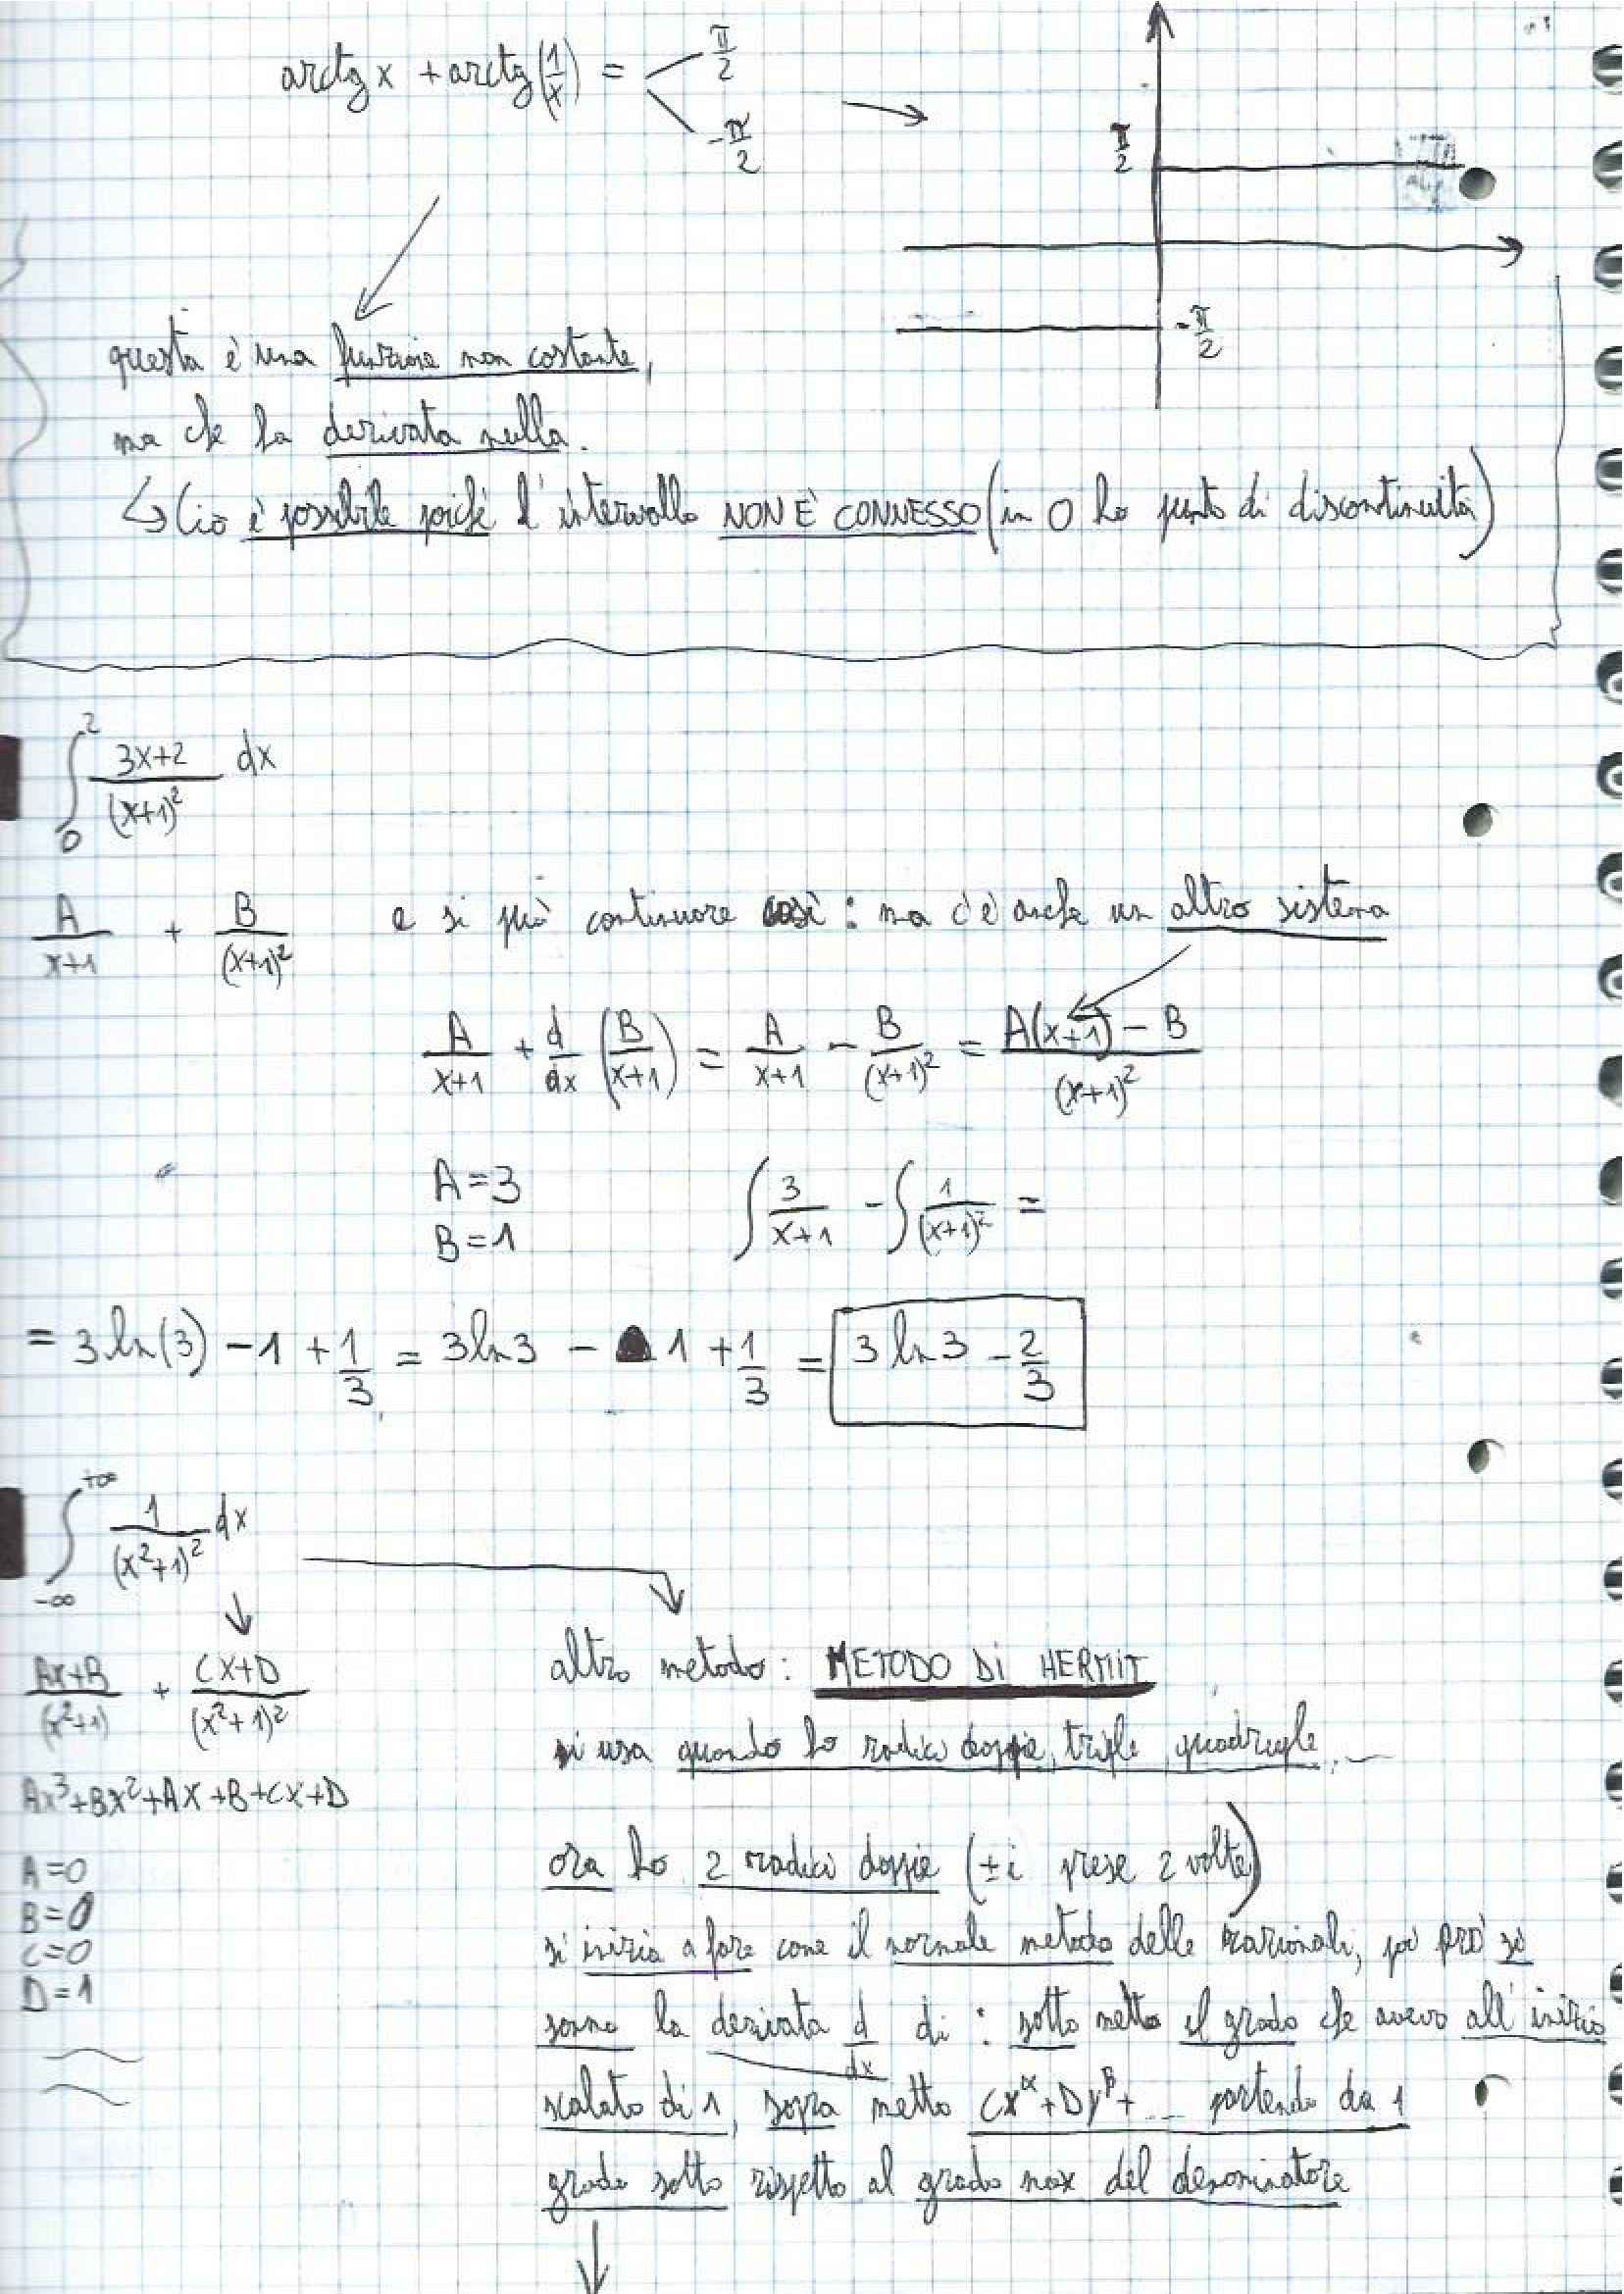 arctg x + arctg(1/x) = π/2
-π/2
π/2
-π/2
questa è una funzione non costante,
ma che ha derivata nulla.
↳ Ciò è possibile poiché l'intervallo NON È CONNESSO (in 0 ho punto di discontinuità)
∫₀² (3x+2)/(x+1)² dx
A/(x+1) + B/(x+1)² e si può continuare così: ma c'è anche un altro sistema
A/(x+1) + d/dx (B/(x+1)) = A/(x+1) - B/(x+1)² = (A(x+1) - B)/(x+1)²
A=3
B=1
∫ 3/(x+1) - ∫ 1/(x+1)² =
= 3 ln(3) - 1 + 1/3 = 3 ln 3 - 1 + 1/3 = 3 ln 3 - 2/3
∫_{-∞}^{+∞} 1/(x²+1)² dx
(Ax+B)/(x²+1) + (Cx+D)/(x²+1)²
Ax³+Bx²+Ax+B+Cx+D
A=0
B=0
C=0
D=1
altro metodo: METODO Di HERMIT
si usa quando ho radici doppie, triple quadruple...
ora ho 2 radici doppie (±i prese 2 volte)
si inizia a fare come il normale metodo delle razionali, poi però si
somma la derivata d/dx di: sotto metto il grado che avevo all'inizio
scalato di 1, sopra metto Cx^α+Dy^β+... partendo da 1
grado sotto rispetto al grado max del denominatore